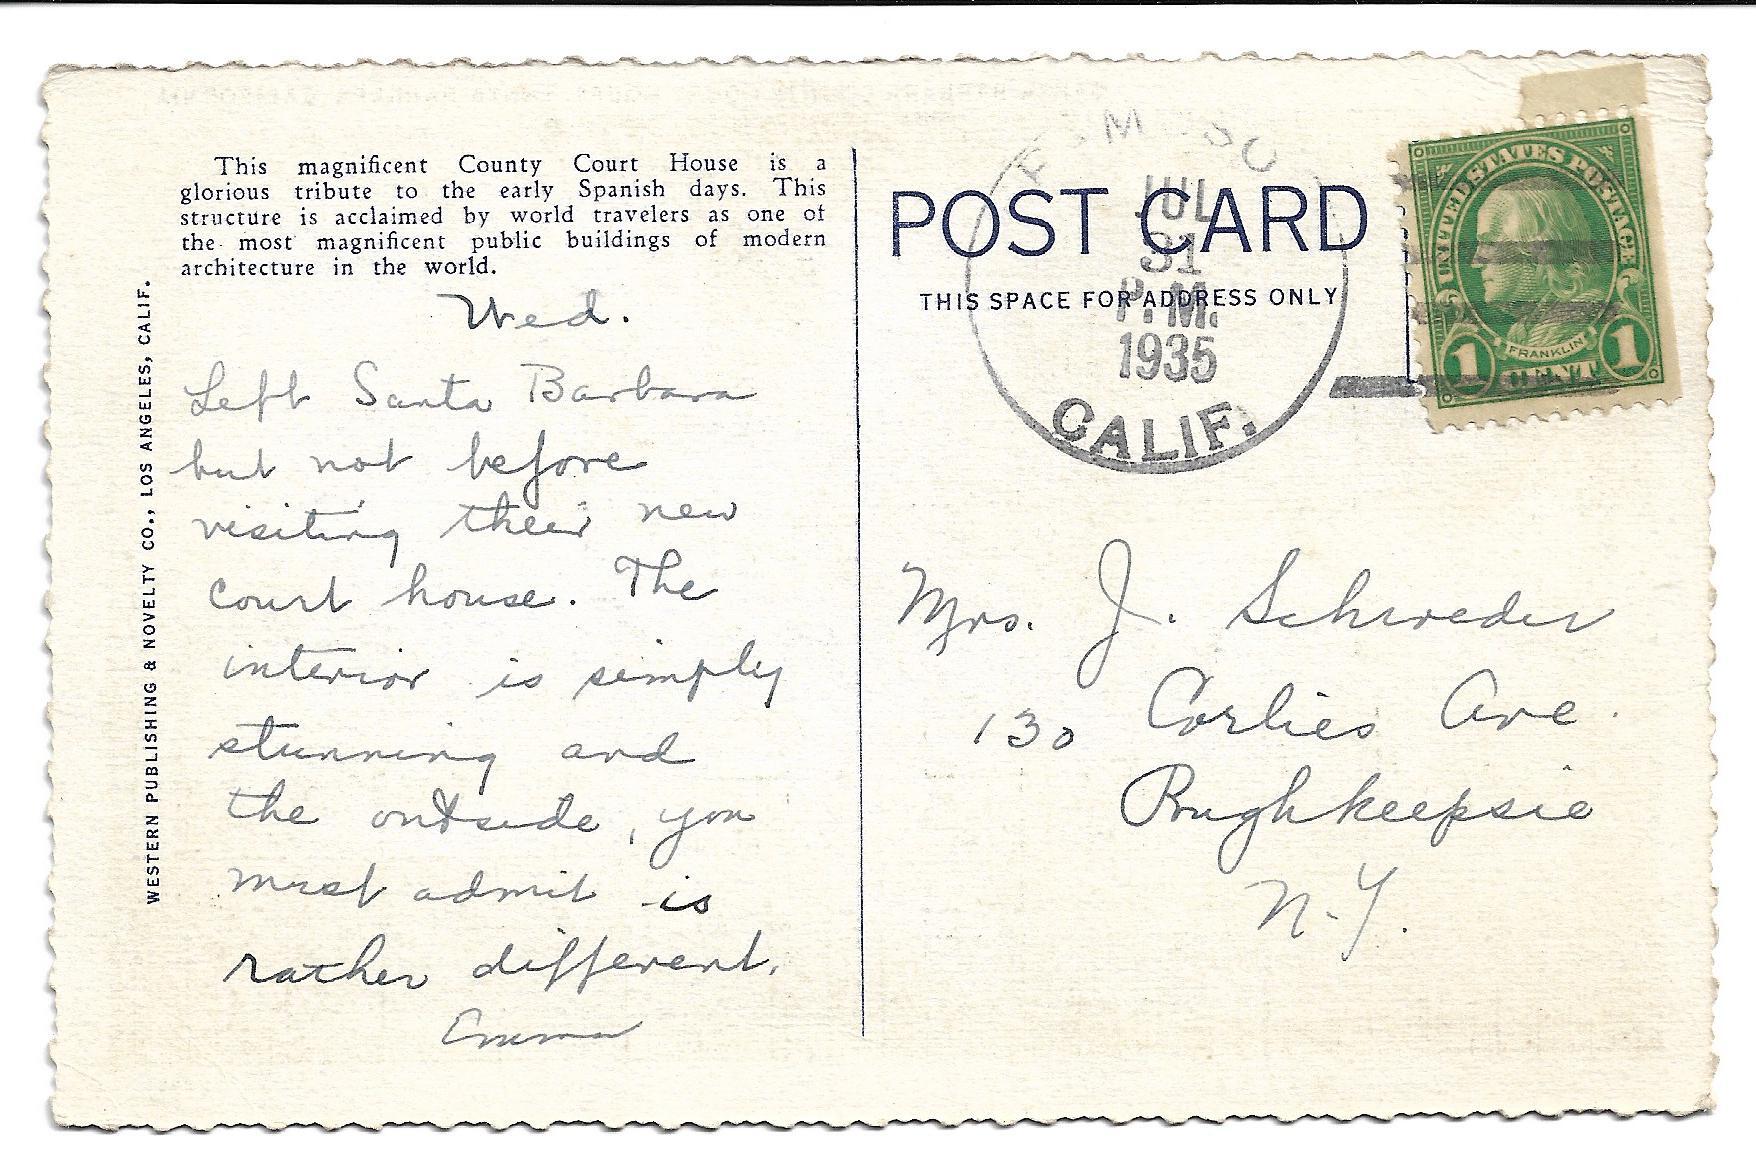 This magnificent County Court House is a
glorious tribute to the early Spanish days. This
structure is acclaimed by world travelers as one of
the most magnificent public buildings of modern
architecture in the world.
WESTERN PUBLISHING & NOVELTY CO., LOS ANGELES, CALIF.
Wed.
Left Santa Barbara
but not before
visiting their new
court house. The
interior is simply
stunning and
the outside, you
must admit is
rather different.
Emma
POST CARD
THIS SPACE FOR ADDRESS ONLY
JUL
31
P.M.
1935
CALIF.
UNITED STATES POSTAGE
FRANKLIN
1 CENT 1
Mrs. J. Schroeder
130 Corlies Ave.
Poughkeepsie
N.Y.